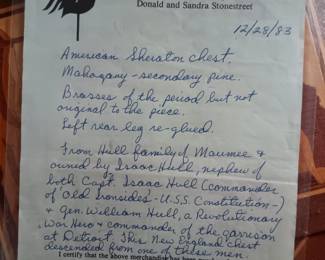 Donald and Sandra Stonestreet
12/28/83
American Sheraton chest.
Mahogany - secondary pine.
Brasses of the period but not
original to the piece.
Left rear leg re-glued.
From Hull family of Maumee &
owned by Isaac Hull, nephew of
both Capt. Isaac Hull (commander
of Old Ironsides - U.S.S. Constitution -)
& Gen. William Hull, a Revolutionary
War Hero & commander of the garrison
at Detroit. This New England chest
descended from one of these men.
I certify that the above merchandise has been